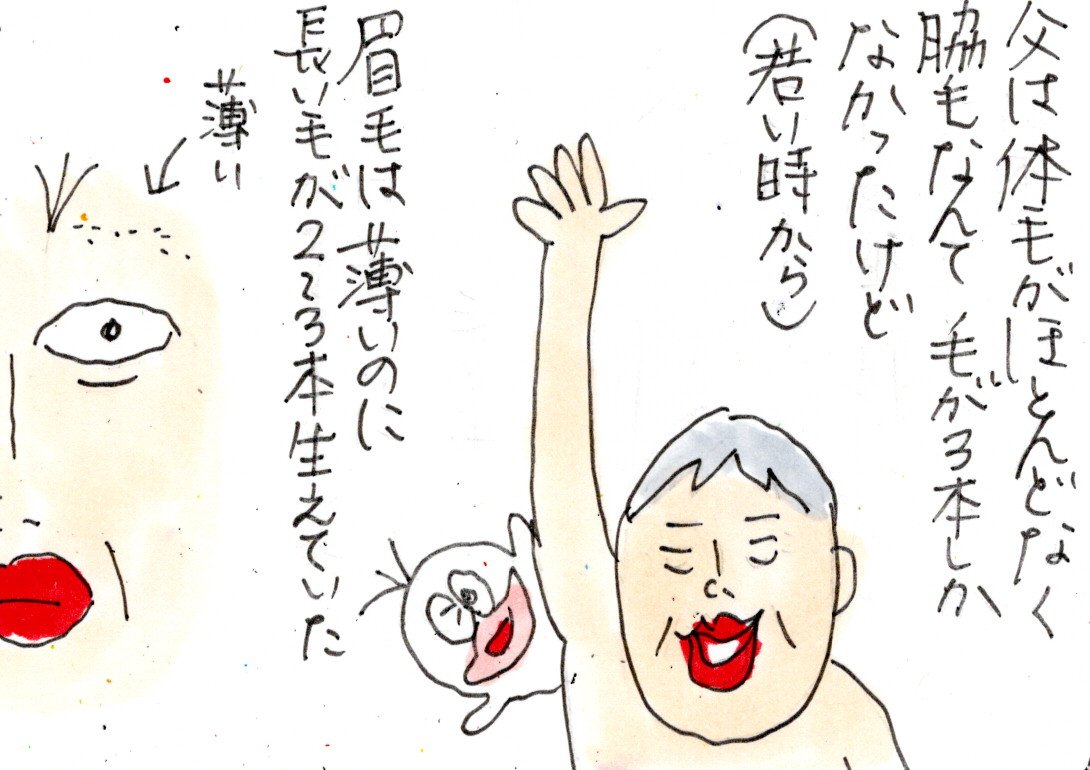 父は体毛がほとんどなく
脇毛なんて毛が3本しか
なかったけど
(若い時から)
眉毛は薄いのに
長い毛が2~3本生えていた
薄い